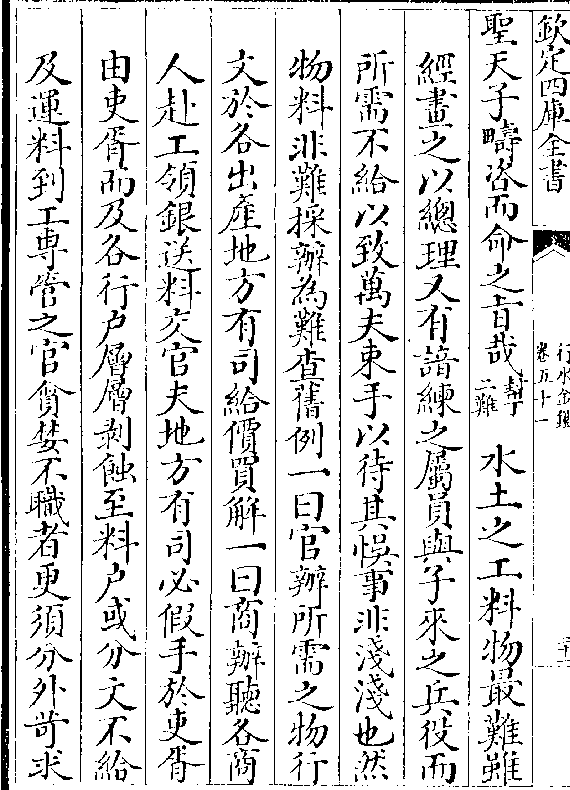 欽定四庫全書
行水金鑑
卷五十一
聖天子疇咨而命之㫖哉 幫丁二難 水土之工料物最難雖
經畫之以總理又有諳練之屬員與子來之兵役而
所需不給以致萬夫束手以待其悞事非淺淺也然
物料非難採辦為難查舊例一曰官辦所需之物行
文於各出產地方有司給價買解一曰商辦聽各商
人赴工領銀送料交官夫地方有司必假手於吏胥
由吏胥而及各行户層層剥蝕至料户或分文不給
及運料到工專管之官貪婪不職者更須分外苛求